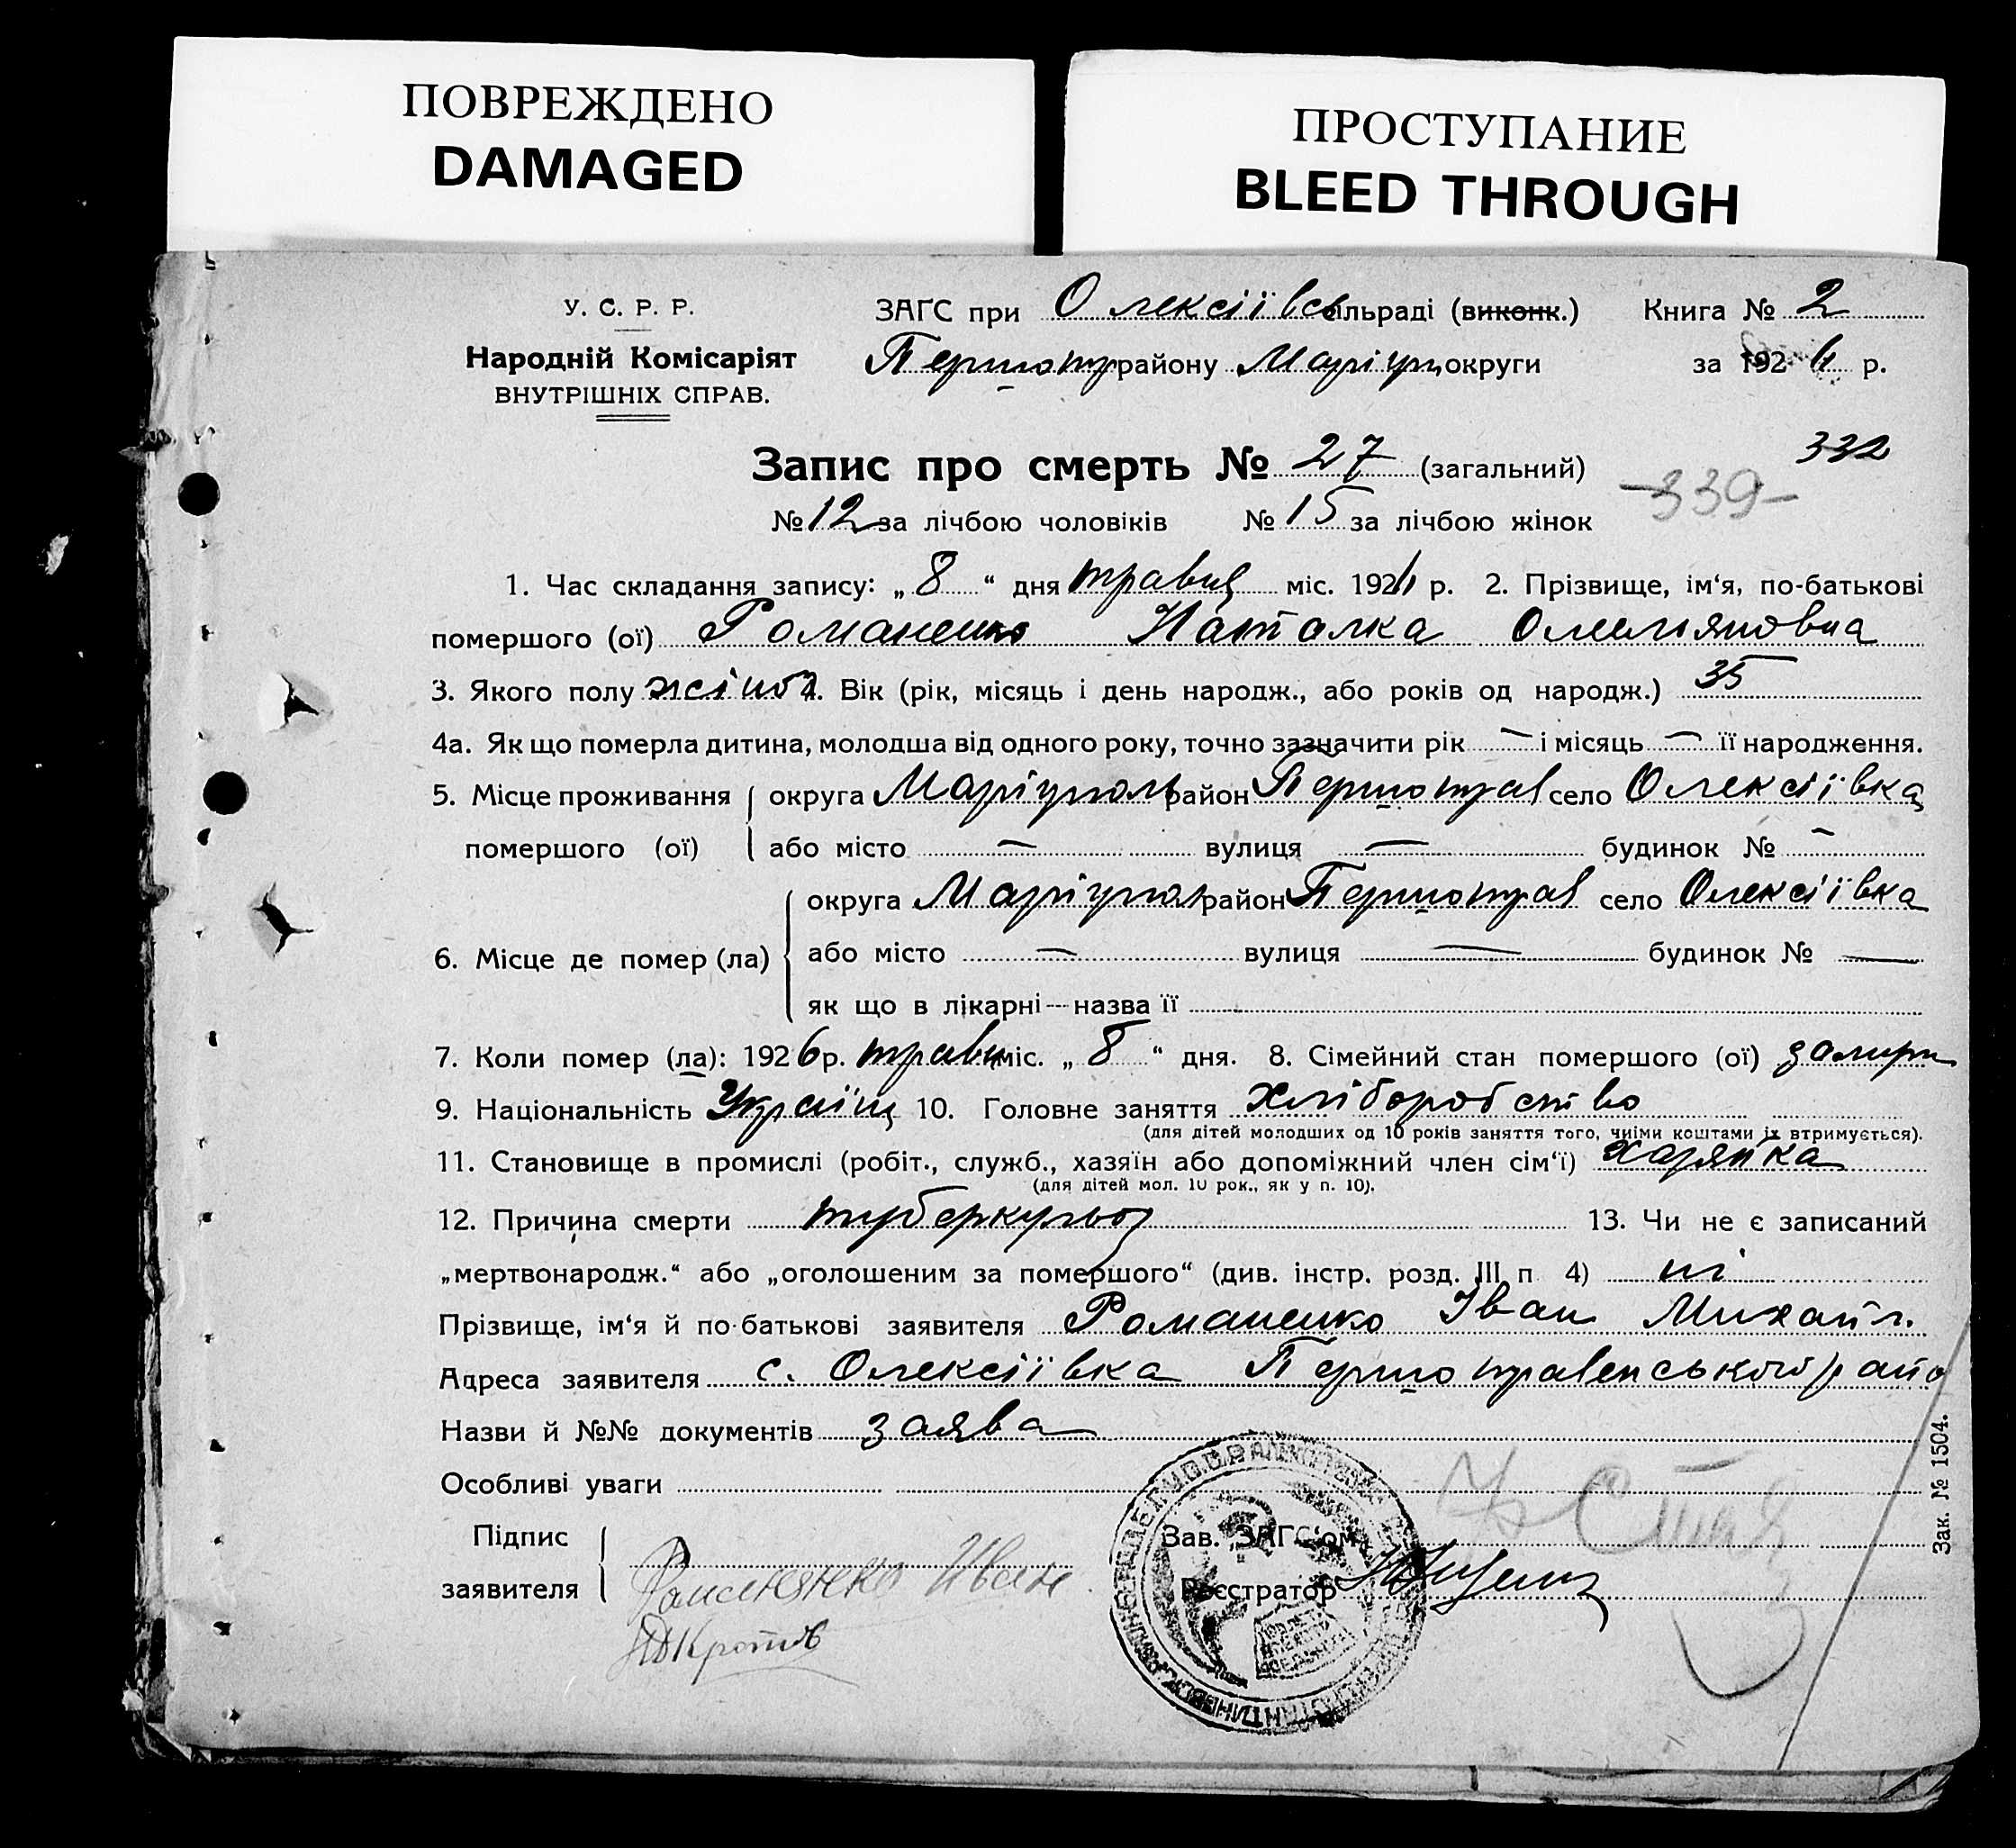 ПОВРЕЖДЕНО
DAMAGED
ПРОСТУПАНИЕ
BLEED THROUGH
У. С. Р. Р.
Народній Комісаріят
ВНУТРІШНІХ СПРАВ.
ЗАГС при Олексіївс сільраді (виконк.) Книга № 2
Першотр району Маріуп. округи за 1926 р.
Запис про смерть № 27 (загальний) 332
-339-
№ 12 за лічбою чоловіків № 15 за лічбою жінок
1. Час складання запису: „8“ дня травня міс. 1926 р. 2. Прізвище, ім‘я, по-батькові
помершого (ої) Романенко Наталка Омельяновна
3. Якого полу жіноч 4. Вік (рік, місяць і день народж., або років од народж.) 35
4а. Як що померла дитина, молодша від одного року, точно зазначити рік — і місяць — її народження.
5. Місце проживання помершого (ої) округа Маріуполь район Першотрав село Олексіївка
або місто — вулиця — будинок № —
6. Місце де помер (ла) округа Маріупол район Першотрав село Олексіївка
або місто — вулиця — будинок № —
як що в лікарні — назва її
7. Коли помер (ла): 1926 р. травн міс. „8“ дня. 8. Сімейний стан помершого (ої)
9. Національність Україн 10. Головне заняття Хліборобство
(для дітей молодших од 10 років заняття того, чиїми коштами їх втримується).
11. Становище в промислі (робіт., служб., хазяїн або допоміжний член сім‘ї) хазяйка
(для дітей мол. 10 рок., як у п. 10).
12. Причина смерти туберкульоз 13. Чи не є записаний
„мертвонародж.“ або „оголошеним за помершого“ (див. інстр. розд. III п 4) ні
Прізвище, ім‘я й по-батькові заявителя Романенко Іван Михайл.
Адреса заявителя с. Олексіївка Першотравенського райо
Назви й №№ документів заява
Особливі уваги
Підпис заявителя Романенко Иван
Зав. ЗАГС‘ом
Реєстратор
Зак. № 1504.